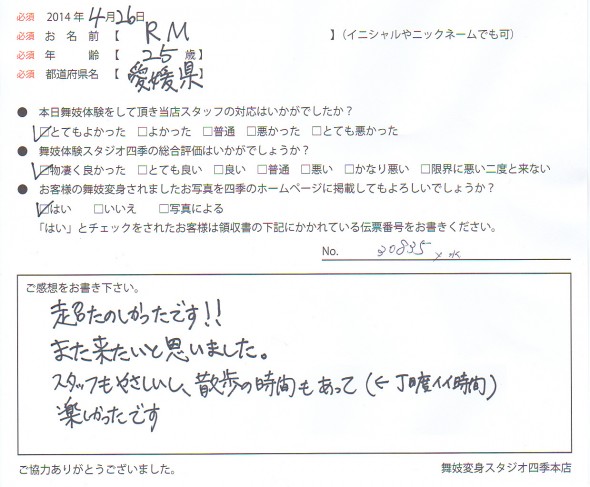 必須 2014年4月26日
必須 お名前【 RM 】（イニシャルやニックネームでも可）
必須 年齢【 25歳】
必須 都道府県名【 愛媛県】
● 本日舞妓体験をして頂き当店スタッフの対応はいかがでしたか？
☑とてもよかった □よかった □普通 □悪かった □とても悪かった
● 舞妓体験スタジオ四季の総合評価はいかがでしょうか？
☑物凄く良かった □とても良い □良い □普通 □悪い □かなり悪い □限界に悪い二度と来ない
● お客様の舞妓変身されましたお写真を四季のホームページに掲載してもよろしいでしょうか？
☑はい □いいえ □写真による
「はい」とチェックをされたお客様は領収書の下記にかかれている伝票番号をお書きください。
No. 20835
ご感想をお書き下さい。
超たのしかったです!!
また来たいと思いました。
スタッフもやさしいし、散歩の時間もあって(←丁度イイ時間)
楽しかったです
ご協力ありがとうございました。
舞妓変身スタジオ四季本店